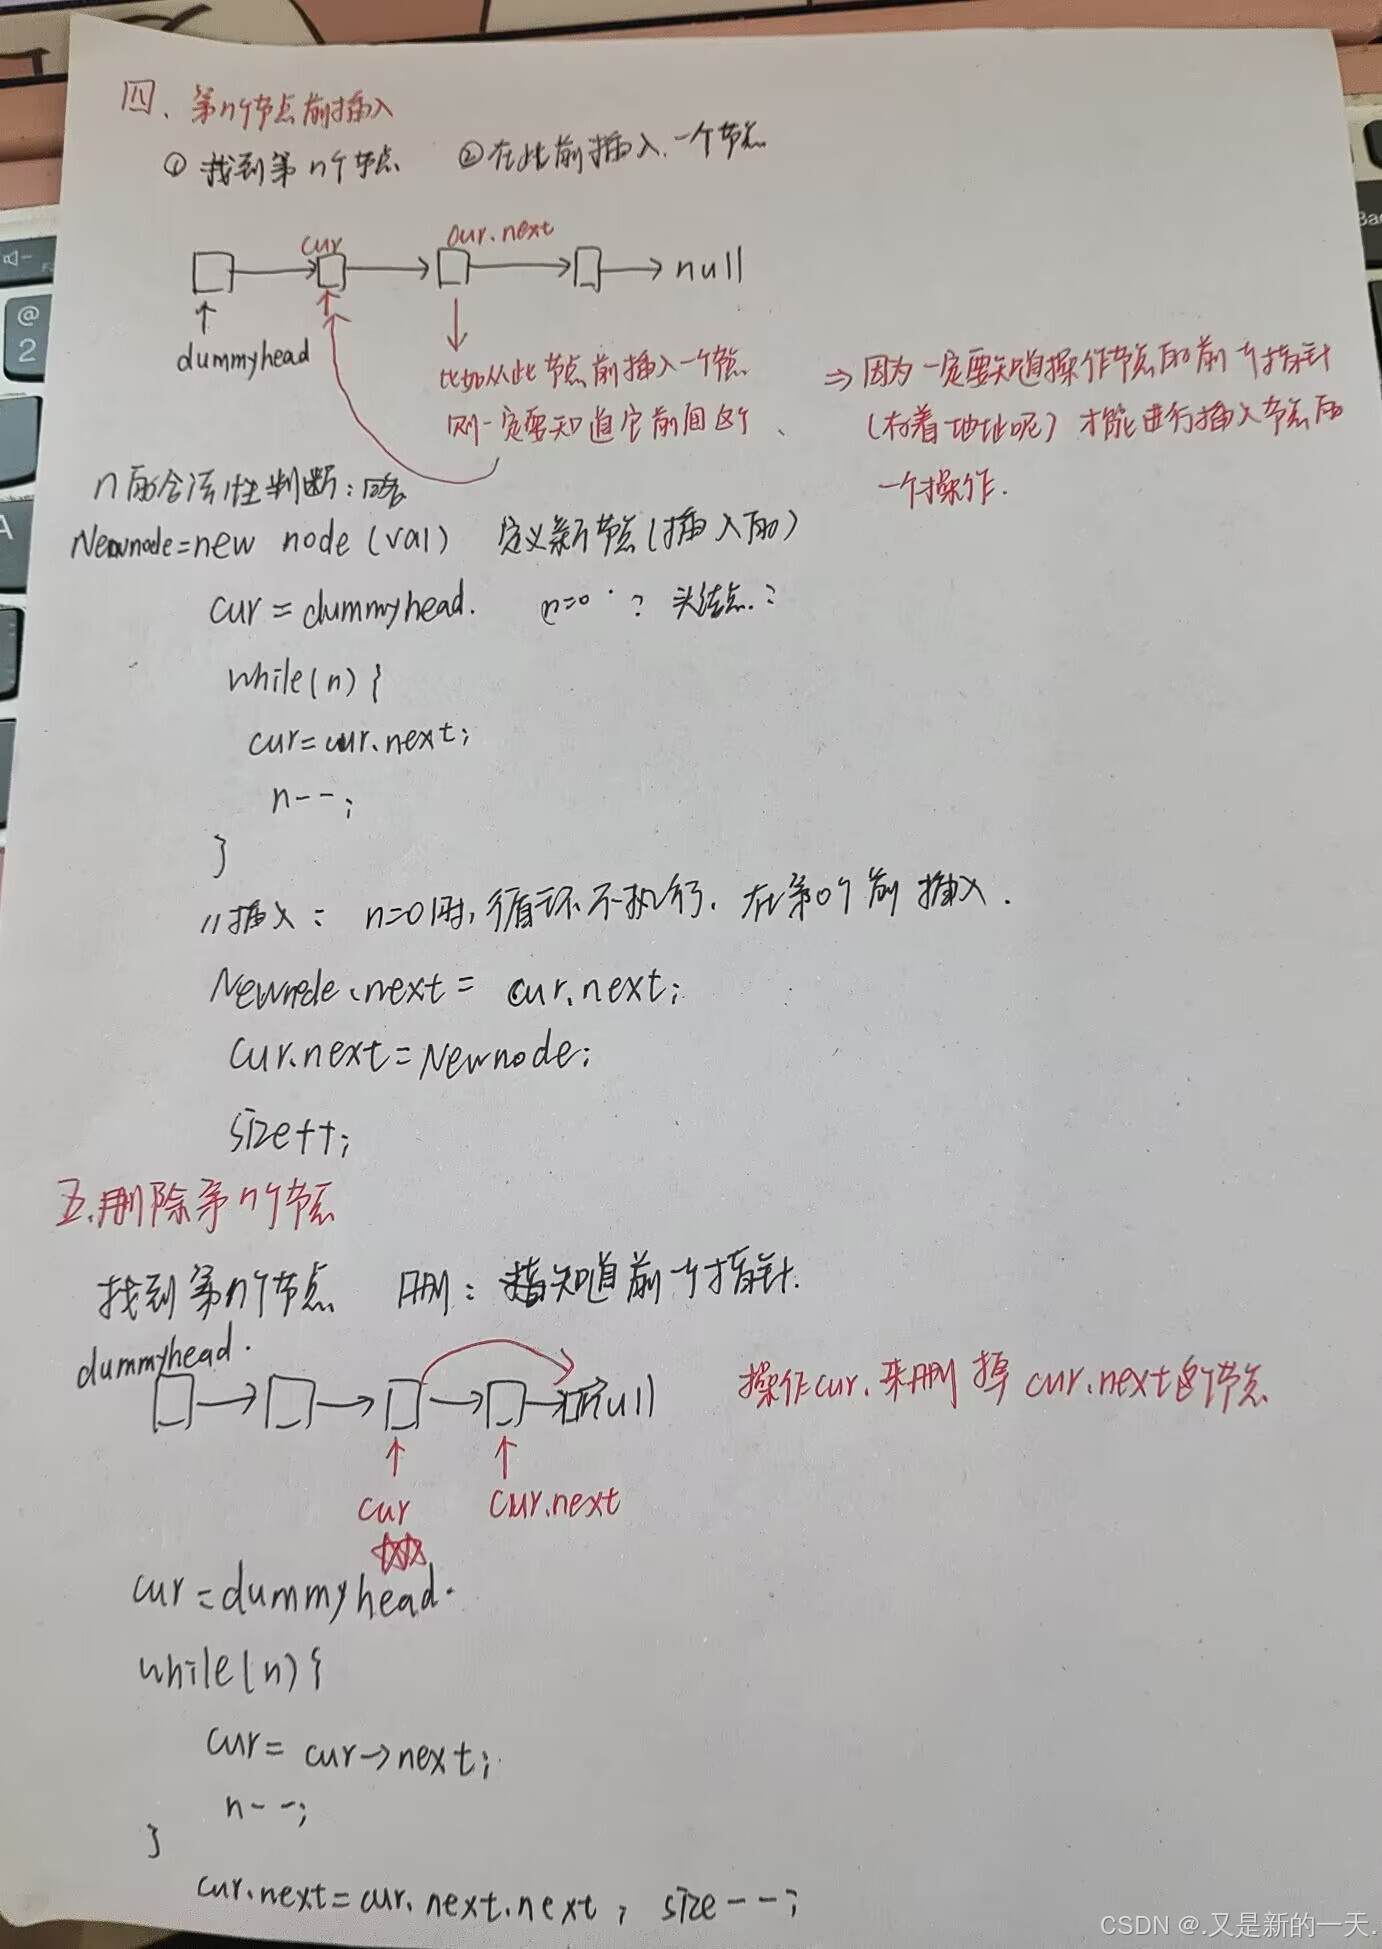 四、第n个节点前插入
① 找到第n个节点 ②在此前插入一个节点
cur cur.next
null
dummyhead
比如从此节点前插入一个节点
则一定要知道它前面这个、
⇒ 因为一定要知道操作节点的前一个指针
(存着地址呢) 才能进行插入节点的
一个操作.
n的合法性判断：略
Newnode=new node(val) 定义新节点(插入的)
cur = dummyhead. n=0 ? 头结点.?
while(n) {
cur=cur.next;
n--;
}
//插入： n=0时,循环不执行. 在第0个前插入.
Newnode.next = cur.next;
cur.next=Newnode;
size++;
五.删除第n个节点
找到第n个节点 删： 知道前一个指针.
dummyhead.
null
操作cur.来删掉 cur.next这个节点
cur cur.next
cur=dummyhead.
while(n){
cur= cur→next;
n--;
}
cur.next=cur.next.next; size--;
CSDN @.又是新的一天.
@
2
A